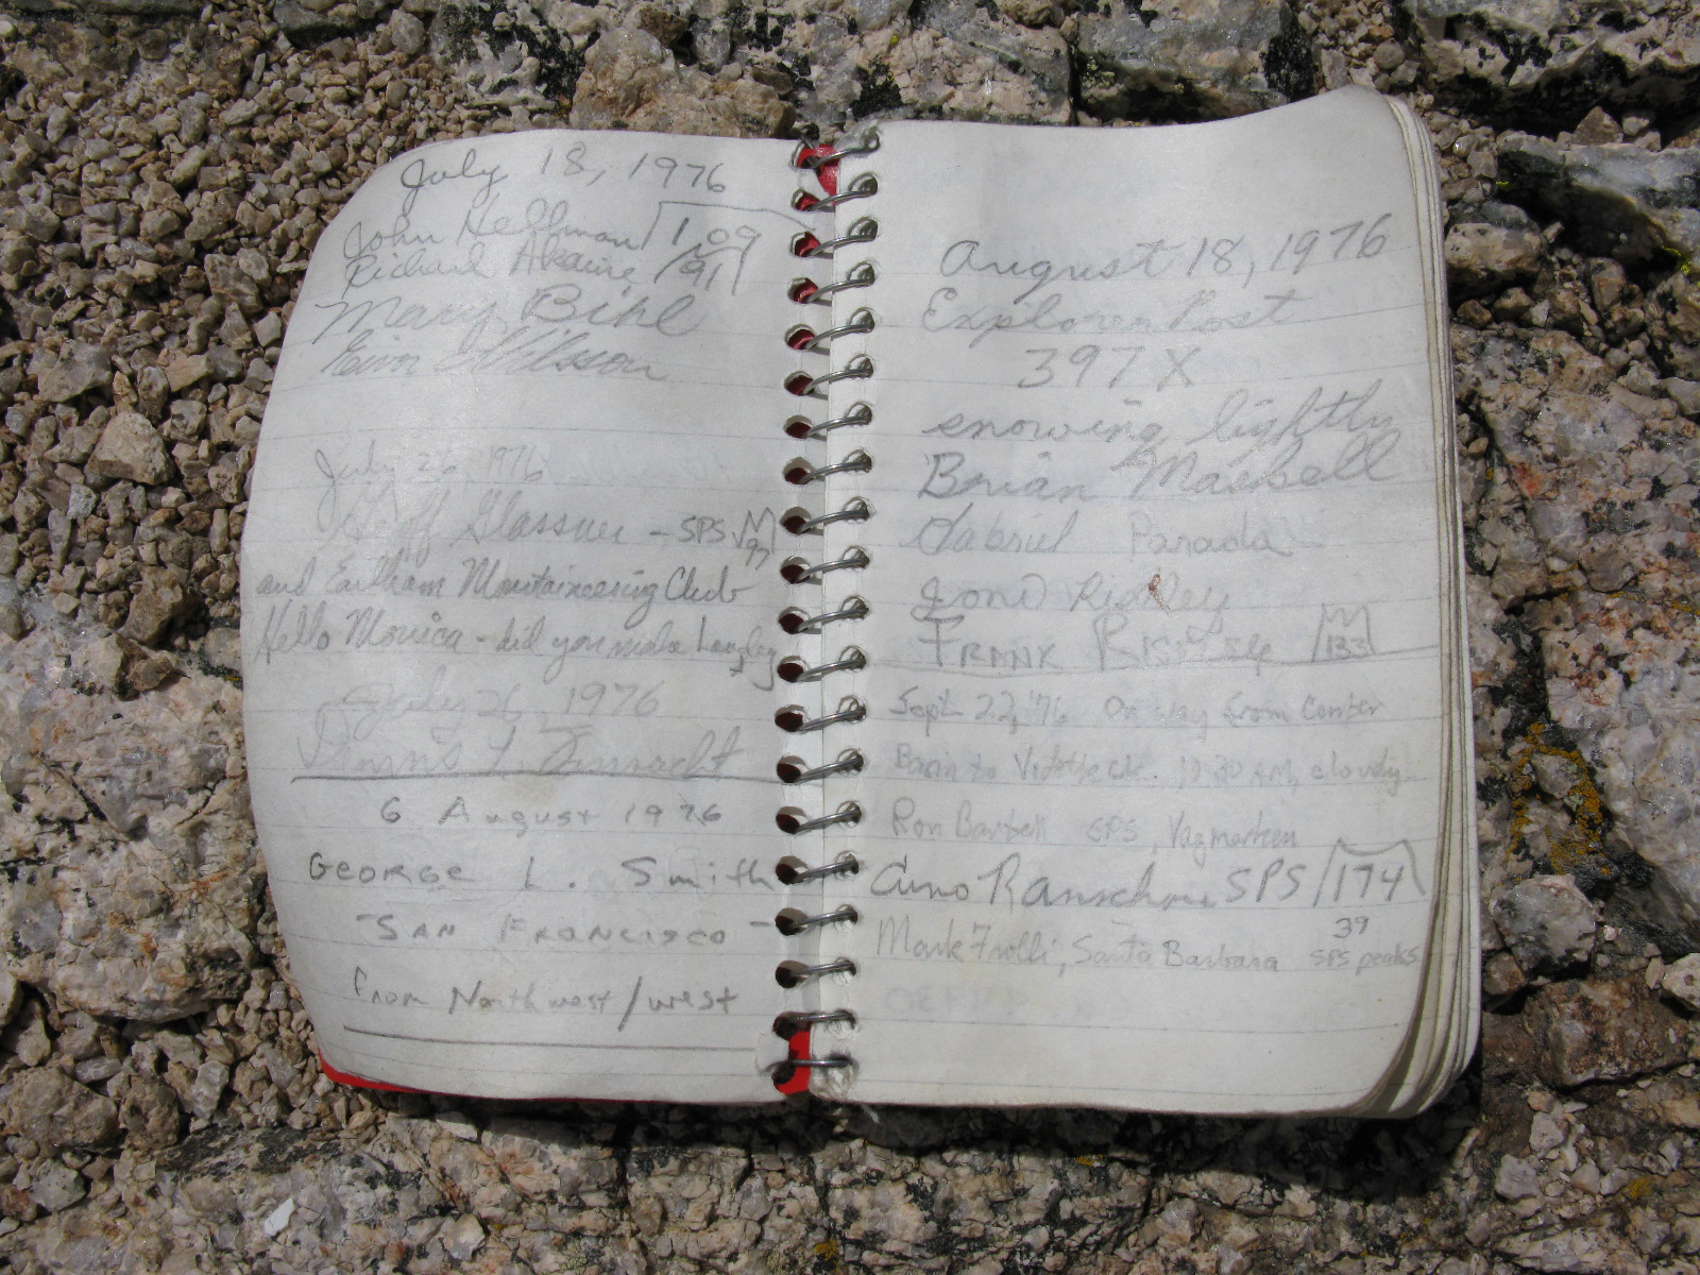 July 18, 1976
John Hellman 109
Richard 91
Mary Bihl
Wilsson
July 26, 1976
Geoff Glassner - SPS 97
and Earlham Mountaineering Club
Hello Monica - did you make Langley
July 26 1976
6 August 1976
GEORGE L. Smith
- SAN FRANCISCO -
from Northwest/west
August 18, 1976
Explorer Post
397X
snowing lightly
Brian Maxbell
Gabriel Parada
Risley
FRANK RISLEY 133
Sept 22, '76 On way from Center
Basin to 10:30 AM, cloudy
Ron Bartell SPS, Vagmarken
Cuno Ranschau SPS 174
Mark Trolli, Santa Barbara 39 SPS peaks